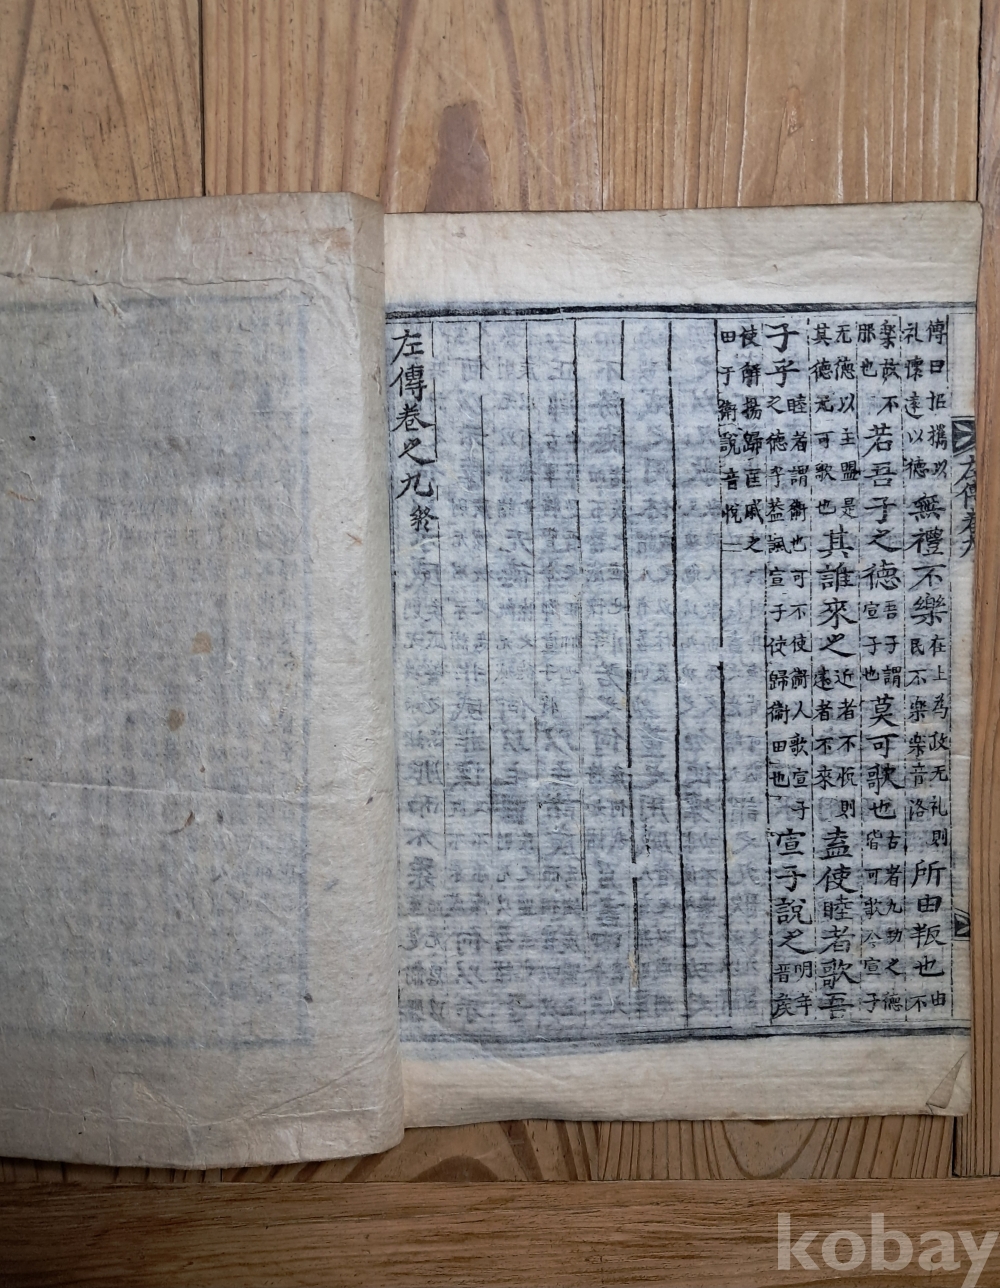 左傳卷九
傳曰招攜以礼懷遠以德無禮不樂在上為政无礼則民不樂樂音洛所由叛也由不
樂故不服也若吾子之德吾子謂宣子也莫可歌也古者九功之德皆可歌今宣子
无德以主盟是其德无可歌也其誰來之近者不悅則遠者不來盍使睦者歌吾
子乎睦者謂衛也可不使衛人歌宣子之德乎蓋諷宣子使歸衛田也宣子說之明年晋侯
使解揚歸匡戚之田于衛說音悅
左傳卷之九終
kobay